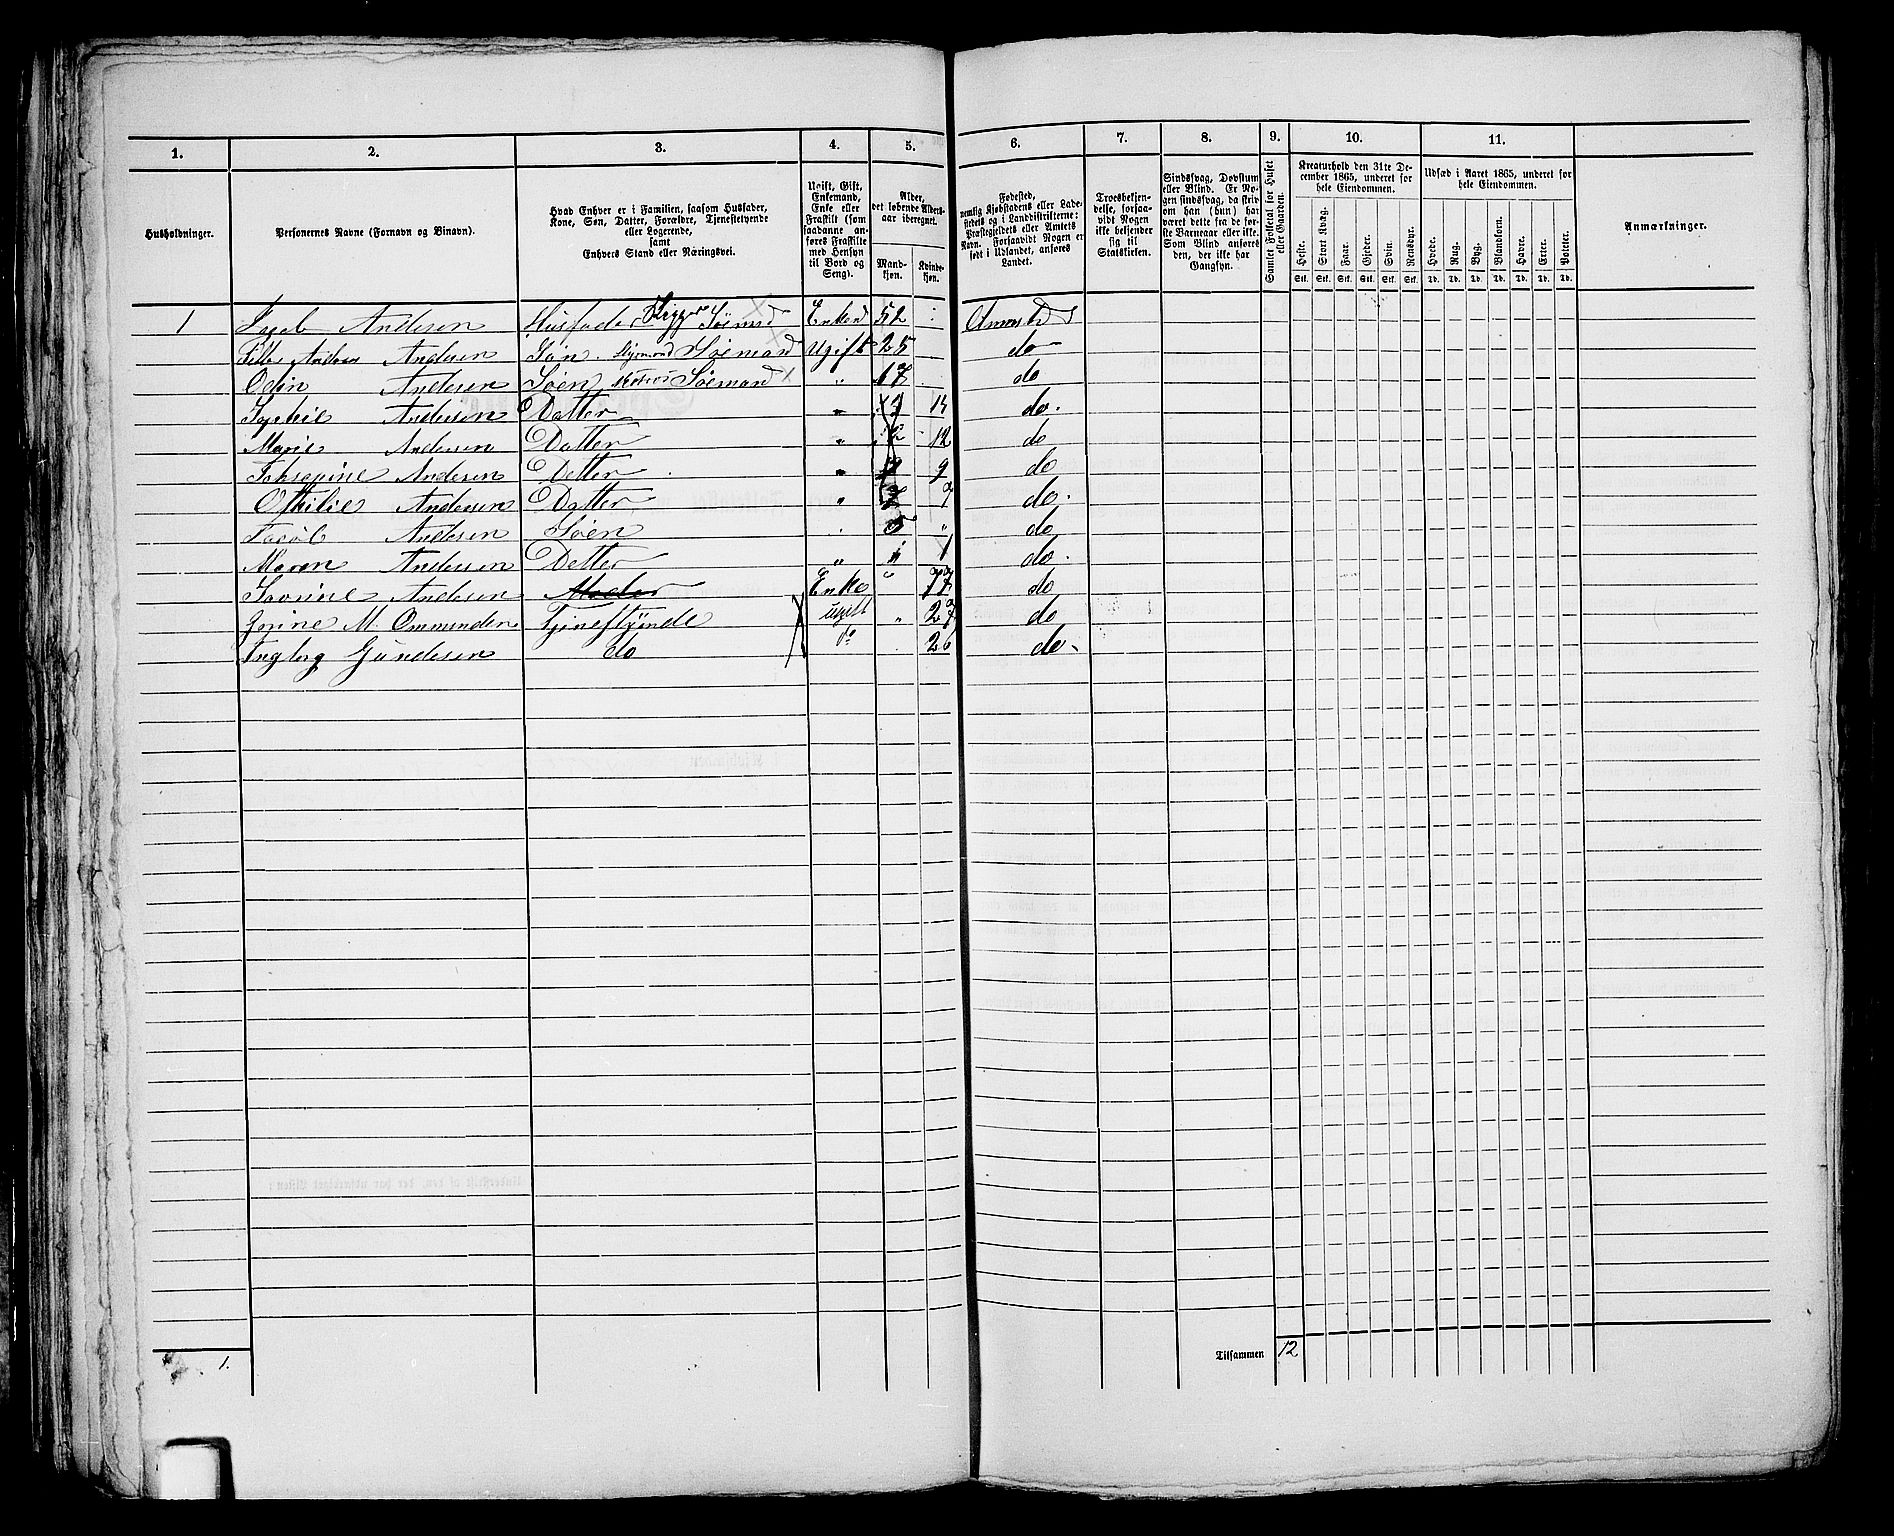 1. 2. 3. 4. 5. 6. 7. 8. 9. 10. 11.
Husholdninger.
Personernes Navne (Fornavn og Binavn).
Hvad Enhver er i Familien, saasom Husfader,
Kone, Søn, Datter, Forældre, Tjenestetyende
eller Logerende,
samt
Enhvers Stand eller Næringsvei.
Ugift, Gift,
Enkemand,
Enke eller
Fraskilt (som
saadanne an-
føres Fraskilte
med Hensyn
til Bord og
Seng).
Alder,
det løbende Alders-
aar iberegnet.
Mand-
kjøn.
Kvinde-
kjøn.
Fødested,
nemlig Kjøbstadens eller Lade-
stedets og i Landdistrikterne:
Præstegjeldets eller Amtets
Navn. Forsaavidt Nogen er
født i Udlandet, anføres
Landet.
Troesbekjen-
delse, forsaa-
vidt Nogen
ikke bekjender
sig til
Statskirken.
Sindssvag, Døvstum
eller Blind. Er No-
gen sindssvag, da skriv
om han (hun) har
været dette fra de før-
ste Barneaar eller ikke.
Som Blind anføres
den, der ikke har
Gangsyn.
Samlet Folketal for Huset
eller Gaarden.
Kreaturhold den 31te De-
cember 1865, underet for
hele Eiendommen.
Heste. Stort Kvæg. Faar. Gjeder. Svin. Rensdyr.
Stk. Stk. Stk. Stk. Stk. Stk.
Udsæd i Aaret 1865, underet for
hele Eiendommen.
Hvede. Rug. Byg. Blandkorn. Havre. Erter. Poteter.
Td. Td. Td. Td. Td. Td. Td.
Anmærkninger.
1 Andersen Husfader Skipper Søemd Enkemd 52
Andersen Søn Styrmand Søemand Ugift 25 do
Odin Andersen Søen Søemand " 17 do
Andersen Datter " 15 do.
Marie Andersen Datter " 12 do
Andersen Datter " 9 do
Othilie Andersen Datter " 7 do.
Jacob Andersen Søen 5 " do
Maren Andersen Datter " " 1 do.
Andersen Moder Enke " 77 do
M. Ommundsen Tjenestyende ugift " 27 do
Ingborg Gundesen do do 26 do
1.
Tilsammen 12